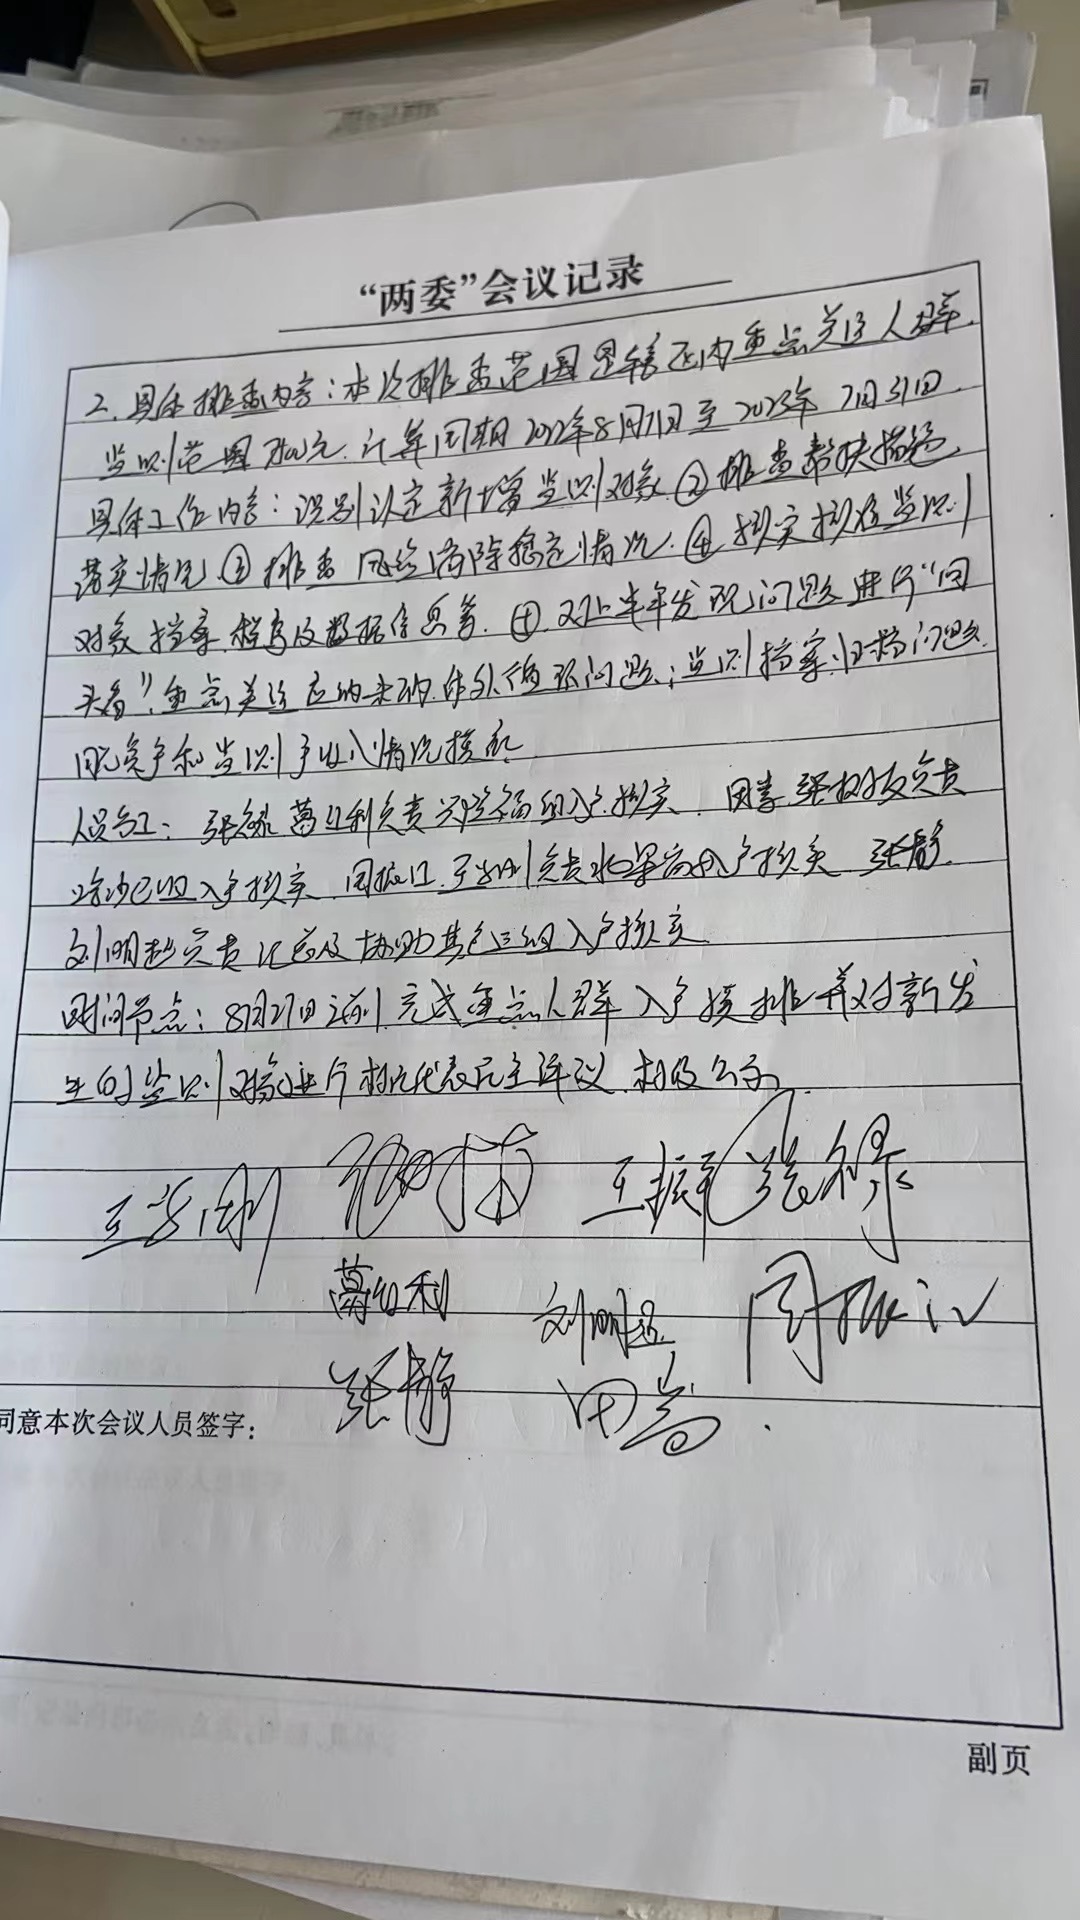 “两委”会议记录
2、具体排查内容：本次排查范围是辖区内重点关注人群.
监测范围7800元.计算周期2022年8月1日至2023年7月31日.
具体工作内容：识别认定新增监测对象.②排查帮扶措施
落实情况.③排查风险消除稳定情况.④核实核准监测
对象档案.档卡及数据信息等.⑤.对上半年发现问题进行“回
头看”，重点关注应纳未纳.体外循环问题；监测档案归档问题.
脱贫户和监测户收入情况摸底
人员分工：张禄 葛红利负责组入户核实.田嵩 张负责
组入户核实.周振江.王负责组入户核实 张静.
刘明超负责及协助其它三组入户核实
时间节点：8月27日之前完成重点人群入户摸排并对新发
生的监测对象进行村民代表民主评议.村级公示.
王刚 王振 张禄
葛红利 刘明超 周振江
张静 田嵩
同意本次会议人员签字：
副页